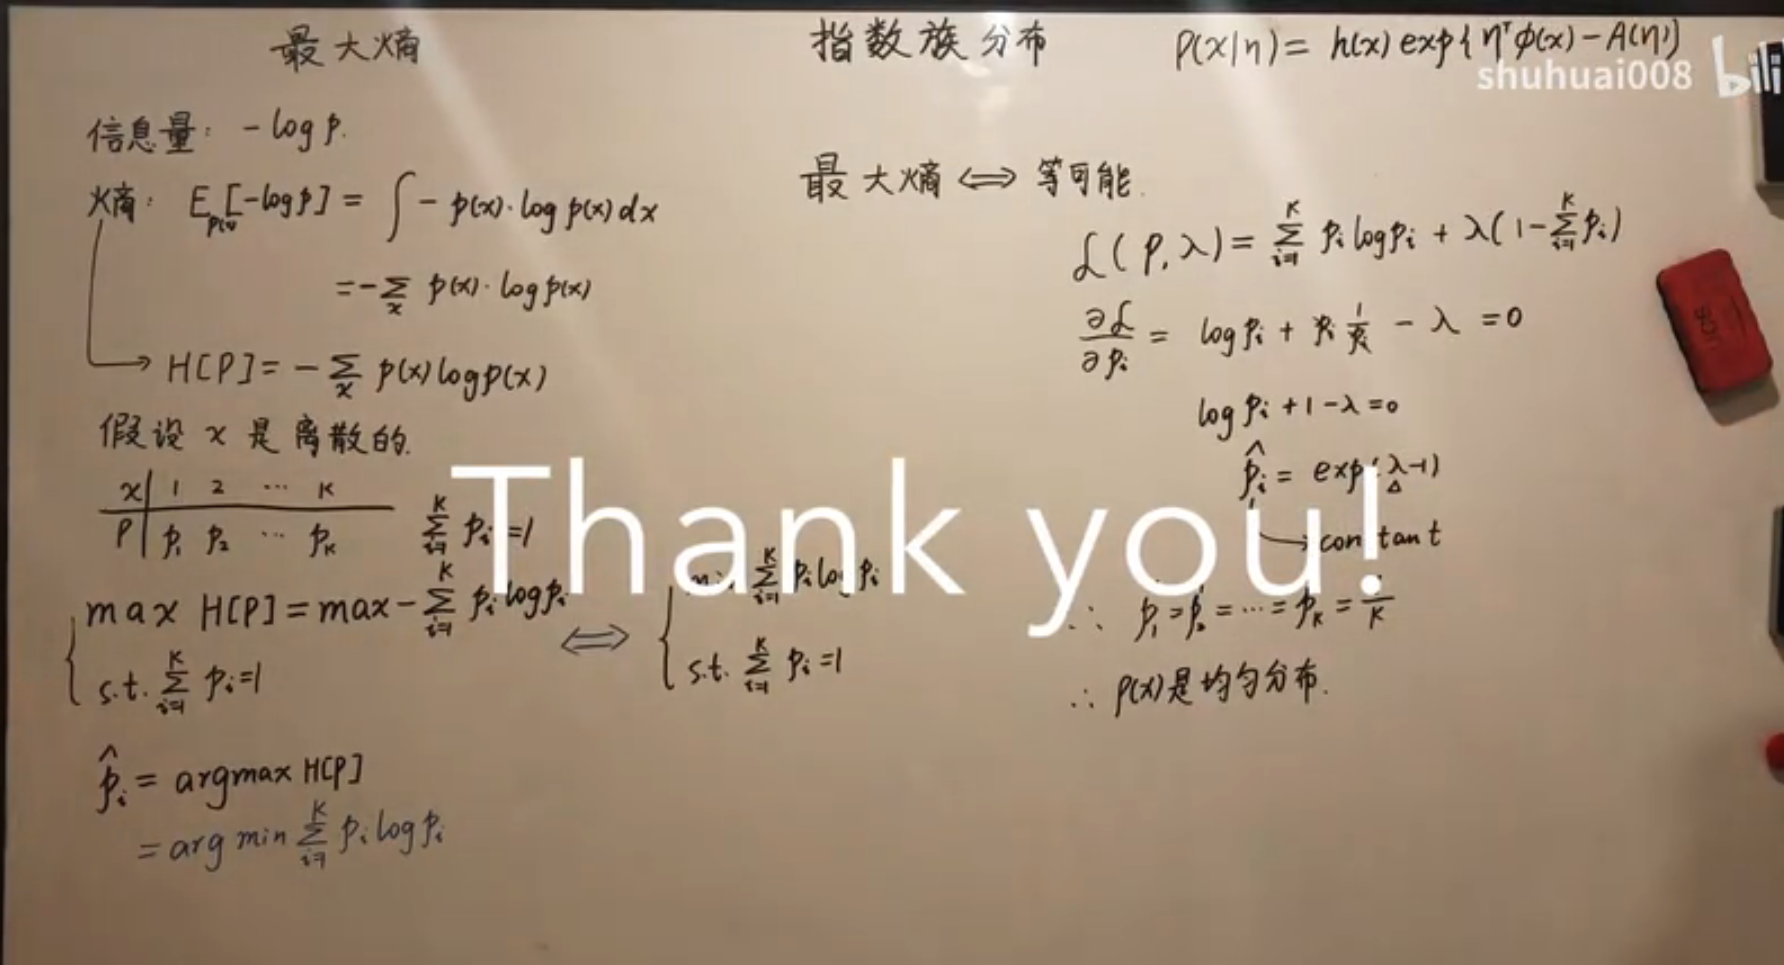 最大熵
指数族分布 P(x|η) = h(x) exp{η^T φ(x) - A(η)}
shuhuai008 bili
信息量: -log p.
熵: E_p(x)[-log p] = ∫ - p(x)·log p(x) dx
= -∑_x p(x)·log p(x)
→ H[P] = -∑_x p(x) log p(x)
假设 x 是离散的.
x | 1 2 ··· K
P | p_1 p_2 ··· p_K ∑_{i=1}^K p_i = 1
max H[P] = max -∑_{i=1}^K p_i log p_i
s.t. ∑_{i=1}^K p_i = 1
⟺ ∑_{i=1}^K p_i log p_i
s.t. ∑_{i=1}^K p_i = 1
p̂_i = argmax H[P]
= arg min ∑_{i=1}^K p_i log p_i
最大熵 ⟺ 等可能.
L(P, λ) = ∑_{i=1}^K p_i log p_i + λ(1 - ∑_{i=1}^K p_i)
∂L/∂p_i = log p_i + p_i 1/p_i - λ = 0
log p_i + 1 - λ = 0
p̂_i = exp(λ-1)
→ constant
∴ p_1 = p_2 = ··· = p_K = 1/K
∴ p(x)是均匀分布.
Thank you!